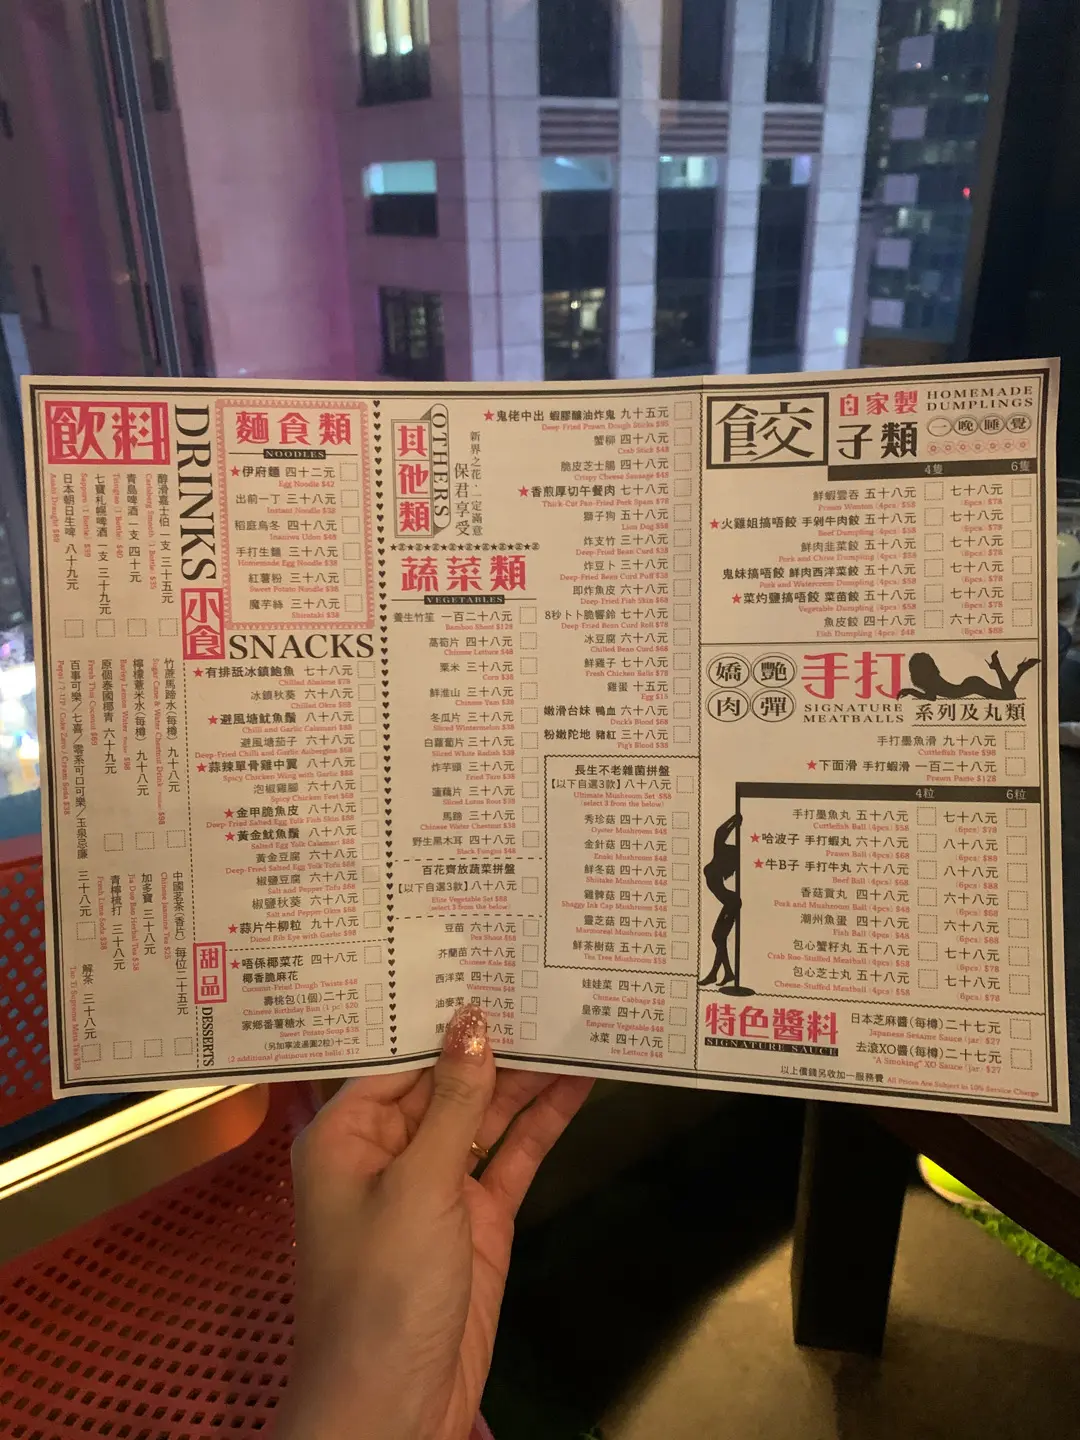 飲料
DRINKS
醇滑嘉士伯 一支 三十五元
Carlsberg Smooth (1 Bottle) $35
青島啤酒 一支 四十元
Tsingtao (1 Bottle) $40
七寶札幌啤酒 一支 三十九元
Sapporo (1 Bottle) $39
日本朝日生啤 八十九元
Asahi Draught $89
竹蔗馬蹄水(每樽) 九十八元
檸檬薏米水(每樽) 九十八元
Barley Lemon Water $98
原個泰國椰青 六十九元
Fresh Thai Coconut $69
百事可樂／七喜／零系可口可樂／玉泉忌廉 三十八元
Pepsi / 7-UP / Coke Zero / Cream Soda $38
中國茗茶(香片) 每位二十五元
Chinese Jasmine Tea $25
加多寶 三十八元
Jia Duo Bao Herbal Tea $38
青檸梳打 三十八元
Fresh Lime Soda $38
解茶 三十八元
麵食類
NOODLES
★伊府麵 四十二元
Egg Noodle $42
出前一丁 三十八元
Instant Noodle $38
稻庭烏冬 四十八元
Inaniwa Udon $48
手打生麵 三十八元
Homemade Egg Noodle $38
紅薯粉 三十八元
Sweet Potato Noodle $38
魔芋絲 三十八元
Shirataki $38
小食
SNACKS
★有排舐冰鎮鮑魚 七十八元
Chilled Abalone $78
冰鎮秋葵 六十八元
Chilled Okra $68
★避風塘魷魚鬚 八十八元
Chilli and Garlic Calamari $88
避風塘茄子 六十八元
Deep-Fried Chilli and Garlic Aubergine $68
★蒜辣單骨雞中翼 八十八元
Spicy Chicken Wing with Garlic $88
泡椒雞腳 六十八元
Spicy Chicken Feet $68
★金甲脆魚皮 八十八元
Deep-Fried Salted Egg Yolk Fish Skin $88
★黃金魷魚鬚 八十八元
Salted Egg Yolk Calamari $88
黃金豆腐 六十八元
Deep-Fried Salted Egg Yolk Tofu $68
椒鹽豆腐 六十八元
Salt and Pepper Tofu $68
椒鹽秋葵 六十八元
Salt and Pepper Okra $68
★蒜片牛柳粒 九十八元
Diced Rib Eye with Garlic $98
甜品
DESSERTS
★唔係椰菜花 四十八元
椰香脆麻花
Coconut-Fried Dough Twists $48
壽桃包(1個)二十元
Chinese Birthday Bun (1 pc) $20
家鄉番薯糖水 三十八元
Sweet Potato Soup $38
(另加寧波湯圓2粒)十二元
其他類
OTHERS
新界之花，一定滿意
保君享受
★鬼佬中出 蝦膠釀油炸鬼 九十五元
Deep Fried Prawn Dough Sticks $95
蟹柳 四十八元
Crab Stick $48
脆皮芝士腸 四十八元
Crispy Cheese Sausage $48
★香煎厚切午餐肉 七十八元
Thick-Cut Pan-Fried Pork Spam $78
獅子狗 五十八元
Lion Dog $58
炸支竹 三十八元
Deep-Fried Bean Curd $38
炸豆卜 三十八元
Deep-Fried Bean Curd Puff $38
即炸魚皮 六十八元
Deep-Fried Fish Skin $68
8秒卜卜脆響鈴 七十八元
Deep-Fried Bean Curd Roll $78
冰豆腐 六十八元
Chilled Bean Curd $68
鮮雞子 七十八元
Fresh Chicken Balls $78
雞蛋 十五元
Egg $15
嫩滑台妹 鴨血 六十八元
Duck's Blood $68
粉嫩陀地 豬紅 三十八元
Pig's Blood $38
蔬菜類
VEGETABLES
養生竹笙 一百二十八元
Bamboo Shoot $128
萵筍片 四十八元
Chinese Lettuce $48
粟米 三十八元
Corn $38
鮮淮山 三十八元
Chinese Yam $38
冬瓜片 三十八元
Sliced Wintermelon $38
白蘿蔔片 三十八元
Sliced White Radish $38
炸芋頭 三十八元
Fried Taro $38
蓮藕片 三十八元
Sliced Lotus Root $38
馬蹄 三十八元
Chinese Water Chestnut $38
野生黑木耳 四十八元
Black Fungus $48
百花齊放蔬菜拼盤
【以下自選3款】八十八元
Elite Vegetable Set $88
(select 3 from the below)
豆苗 六十八元
Pea Shoot $68
芥蘭苗 六十八元
Chinese Kale $68
西洋菜 四十八元
Watercress $48
油麥菜 四十八元
長生不老雜菌拼盤
【以下自選3款】八十八元
Ultimate Mushroom Set $88
(select 3 from the below)
秀珍菇 四十八元
Oyster Mushroom $48
金針菇 四十八元
Enoki Mushroom $48
鮮冬菇 四十八元
Shiitake Mushroom $48
雞髀菇 四十八元
Shaggy Ink Cap Mushroom $48
靈芝菇 四十八元
Marmoreal Mushroom $48
鮮茶樹菇 五十八元
Tea Tree Mushroom $58
娃娃菜 四十八元
Chinese Cabbage $48
皇帝菜 四十八元
Emperor Vegetable $48
冰菜 四十八元
Ice Lettuce $48
自家製
餃子類
HOMEMADE
DUMPLINGS
一晚睡覺
4隻 6隻
鮮蝦雲吞 五十八元 七十八元
Prawn Wonton (4pcs) $58 (6pcs) $78
★火雞姐搞唔餃 手剁牛肉餃 五十八元 七十八元
Beef Dumpling (4pcs) $58 (6pcs) $78
鮮肉韭菜餃 五十八元 七十八元
Pork and Chive Dumpling (4pcs) $58 (6pcs) $78
鬼妹搞唔餃 鮮肉西洋菜餃 五十八元 七十八元
Pork and Watercress Dumpling (4pcs) $58 (6pcs) $78
★菜灼鹽搞唔餃 菜苗餃 五十八元 七十八元
Vegetable Dumpling (4pcs) $58 (6pcs) $78
魚皮餃 四十八元 六十八元
Fish Dumpling (4pcs) $48 (6pcs) $68
嬌艷肉彈
手打
SIGNATURE
MEATBALLS
系列及丸類
手打墨魚滑 九十八元
Cuttlefish Paste $98
★下面滑 手打蝦滑 一百二十八元
Prawn Paste $128
4粒 6粒
手打墨魚丸 五十八元 七十八元
Cuttlefish Ball (4pcs) $58 (6pcs) $78
★哈波子 手打蝦丸 六十八元 八十八元
Prawn Ball (4pcs) $68 (6pcs) $88
★牛B子 手打牛丸 六十八元 八十八元
Beef Ball (4pcs) $68 (6pcs) $88
香菇貢丸 四十八元 六十八元
Pork and Mushroom Ball (4pcs) $48 (6pcs) $68
潮州魚蛋 四十八元 六十八元
Fish Ball (4pcs) $48 (6pcs) $68
包心蟹籽丸 五十八元 七十八元
Crab Roe-Stuffed Meatball (4pcs) $58 (6pcs) $78
包心芝士丸 五十八元 七十八元
Cheese-Stuffed Meatball (4pcs) $58 (6pcs) $78
特色醬料
SIGNATURE SAUCE
日本芝麻醬(每樽)二十七元
Japanese Sesame Sauce (jar) $27
去滾XO醬(每樽)二十七元
"A Smoking" XO Sauce (jar) $27
以上價錢另收加一服務費 All Prices Are Subject to 10% Service Charge